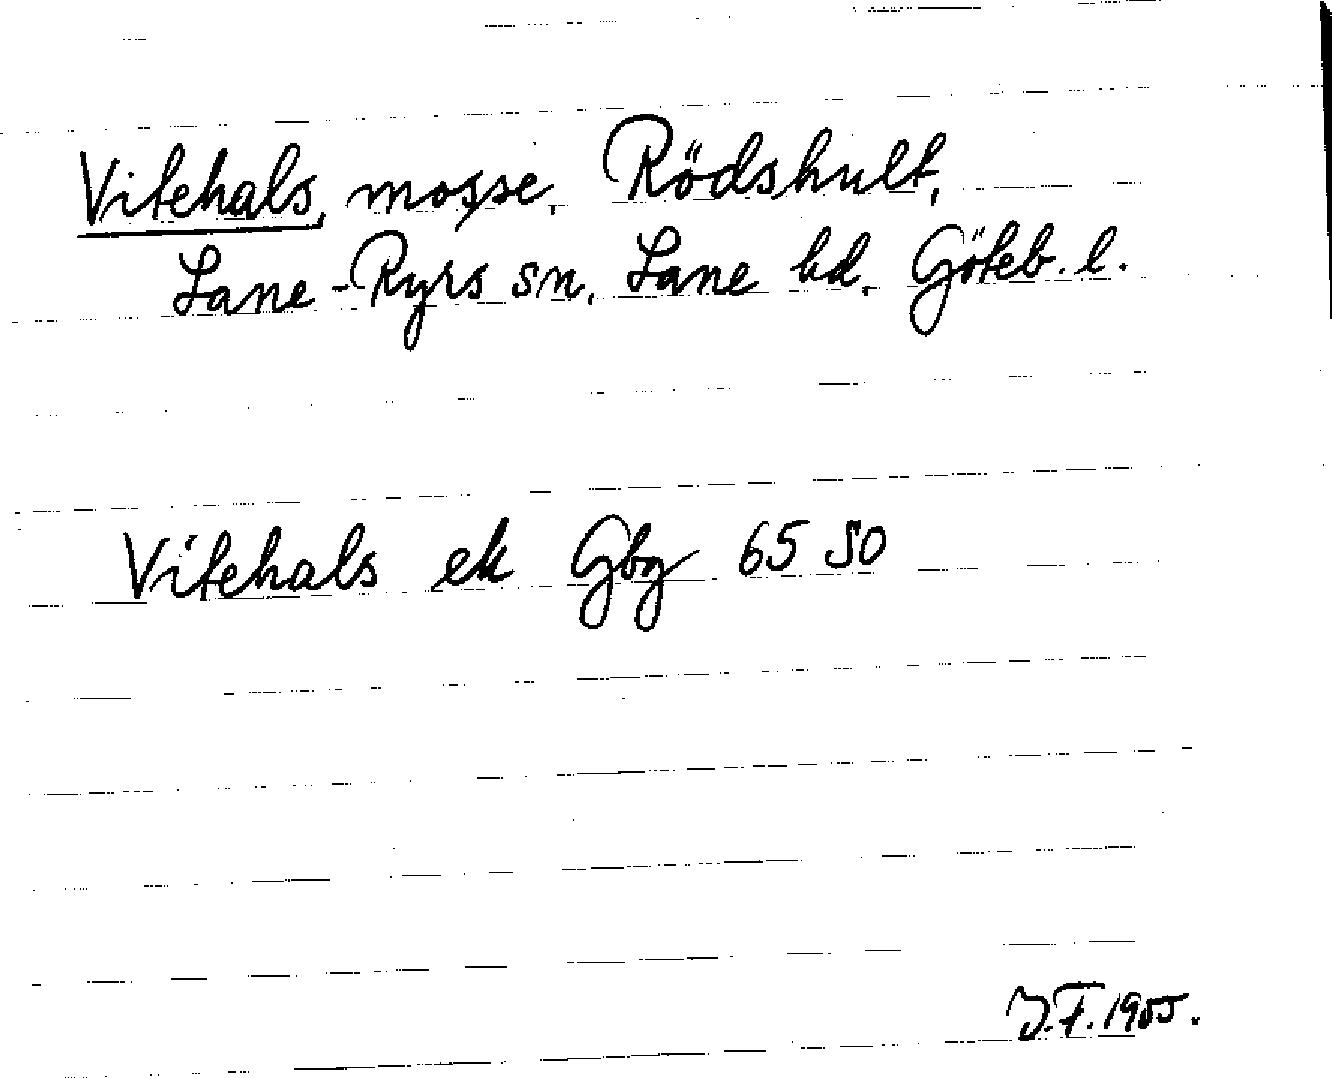 Vitehals, mosse, Rödshult,
Lane-Ryrs sn, Lane hd. Göteb. l.
Vitehals ek Gbg 65 SO
J.F. 1955.